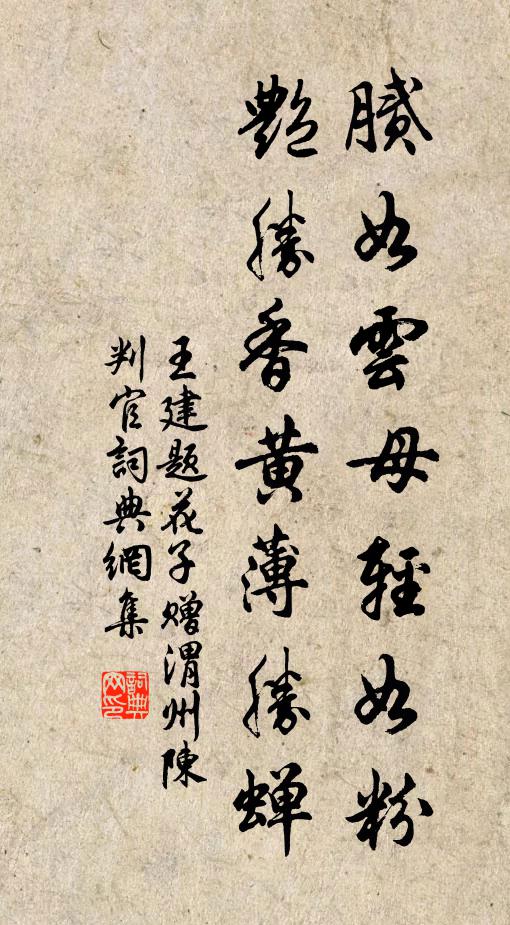 膩如雲母輕如粉
艷勝香黃薄勝蟬
王建題花子贈渭州陳
判官詞典網集
詞典
网印